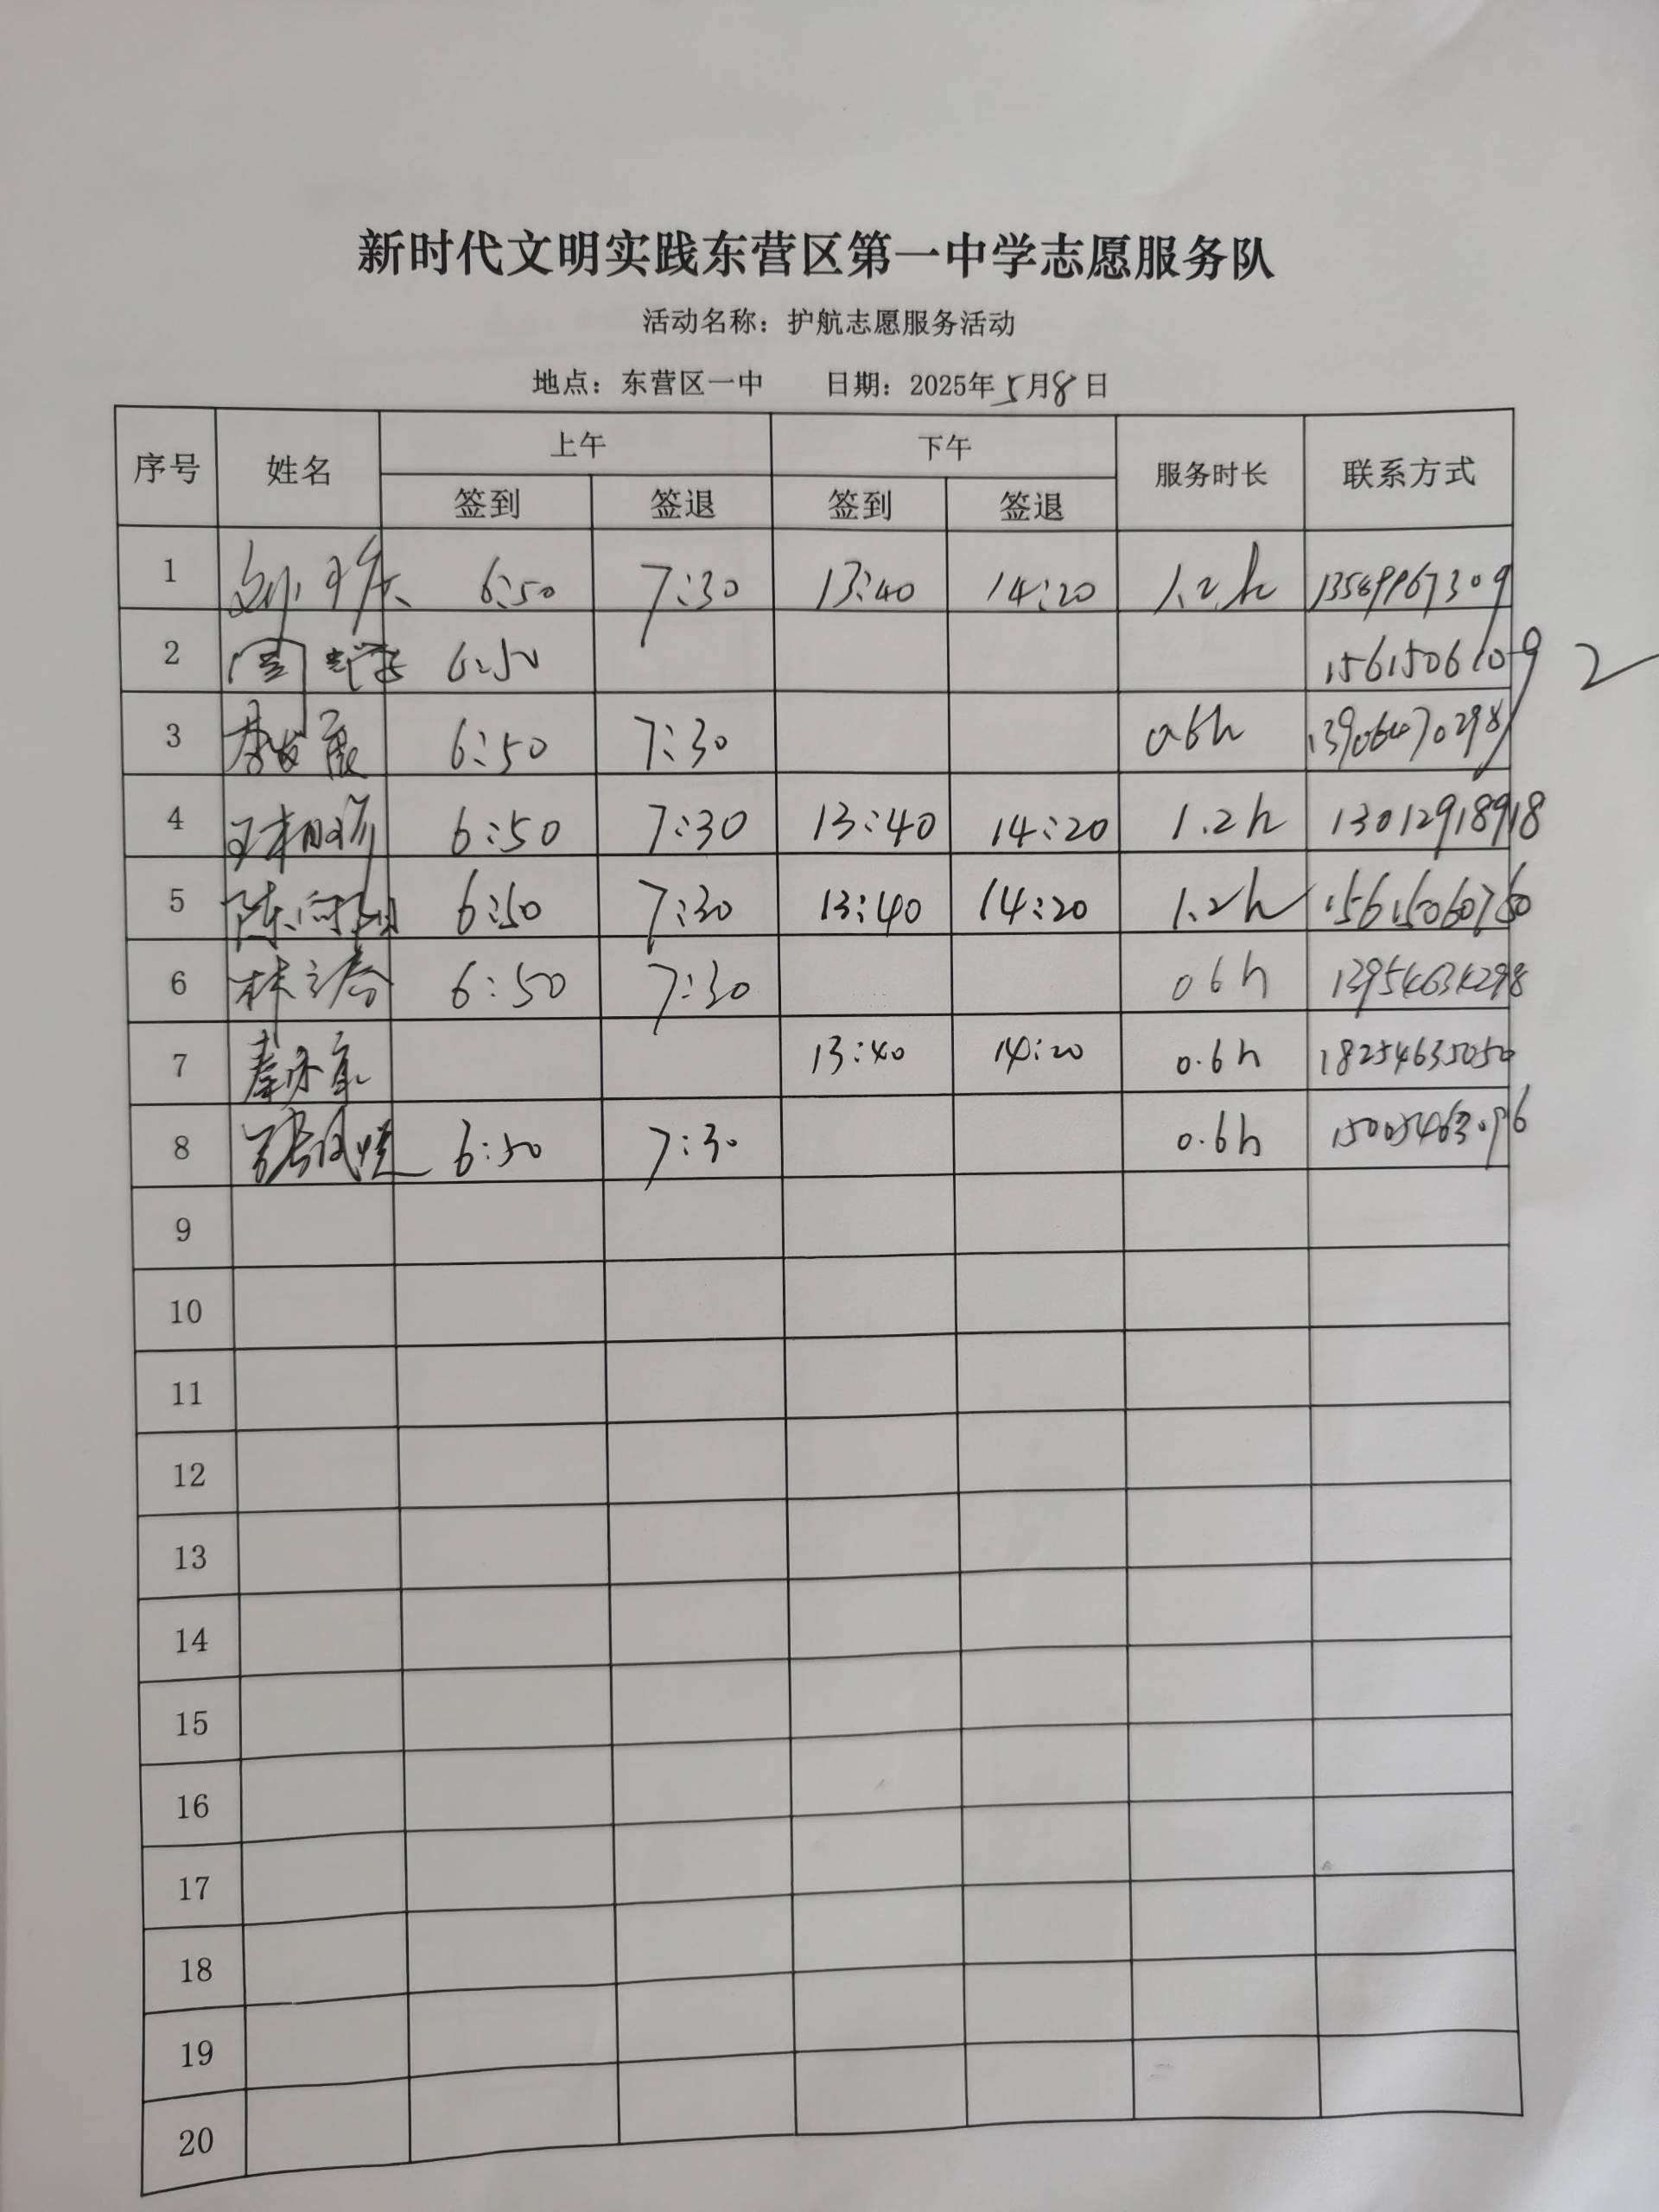 新时代文明实践东营区第一中学志愿服务队
活动名称：护航志愿服务活动
地点：东营区一中 日期：2025年5月8日
序号 姓名 上午 下午 服务时长 联系方式
签到 签退 签到 签退
1 6:50 7:30 13:40 14:20 1.2h
2 6:50 2
3 6:50 7:30 0.6h
4 6:50 7:30 13:40 14:20 1.2h 13012918918
5 6:50 7:30 13:40 14:20 1.2h 15615060760
6 6:50 7:30 06h 13954634298
7 13:40 14:20 0.6h 18254635050
8 6:50 7:30 0.6h 15005463096
9
10
11
12
13
14
15
16
17
18
19
20